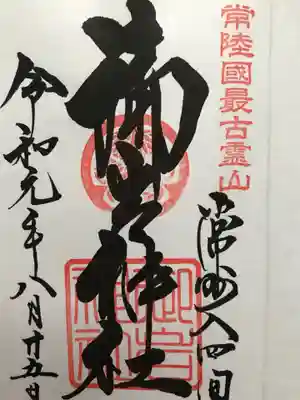 常陸國最古霊山
常州入四間
御岩神社
令和元年八月廿五日